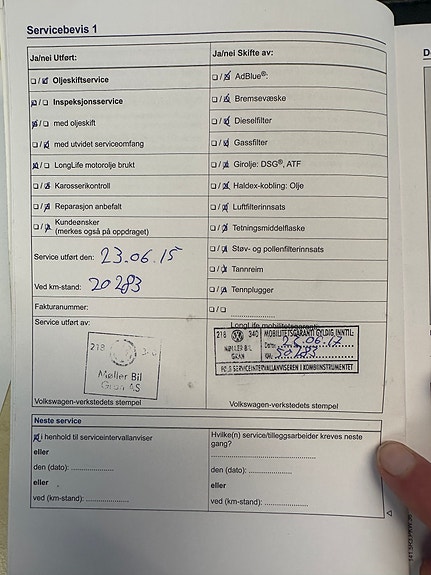 Servicebevis 1
Ja/nei Utført:
Ja/nei Skifte av:
☐ / ☒ Oljeskiftservice
☐ / ☒ AdBlue®:
☒ / ☐ Inspeksjonsservice
☐ / ☒ Bremsevæske
☒ / ☐ med oljeskift
☐ / ☒ Dieselfilter
☐ / ☒ med utvidet serviceomfang
☐ / ☒ Gassfilter
☒ / ☐ LongLife motorolje brukt
☐ / ☒ Girolje: DSG®, ATF
☐ / ☒ Karosserikontroll
☐ / ☒ Haldex-kobling: Olje
☐ / ☒ Reparasjon anbefalt
☐ / ☒ Luftfilterinnsats
☐ / ☒ Kundeønsker
(merkes også på oppdraget)
☐ / ☒ Tetningsmiddelflaske
Service utført den: 23.06.15
☐ / ☒ Støv- og pollenfilterinnsats
☐ / ☒ Tannreim
Ved km-stand: 20283
☐ / ☒ Tennplugger
Fakturanummer:
☐ / ☐ ....................
Service utført av:
LongLife mobilitetsgaranti:
218 340
Møller Bil
Gran AS
218 340
MØLLER BIL
GRAN
MOBILITETSGARANTI GYLDIG INNTIL:
Dato: 23.06.17
KM: 50283
SERVICEINTERVALLANVISEREN I KOMBIINSTRUMENTET
Volkswagen-verkstedets stempel
Volkswagen-verkstedets stempel
Neste service
☒ i henhold til serviceintervallanviser
eller
den (dato): ....................
eller
ved (km-stand): ....................
Hvilke(n) service/tilleggsarbeider kreves neste
gang?
....................
den (dato): ....................
eller
ved (km-stand): ....................